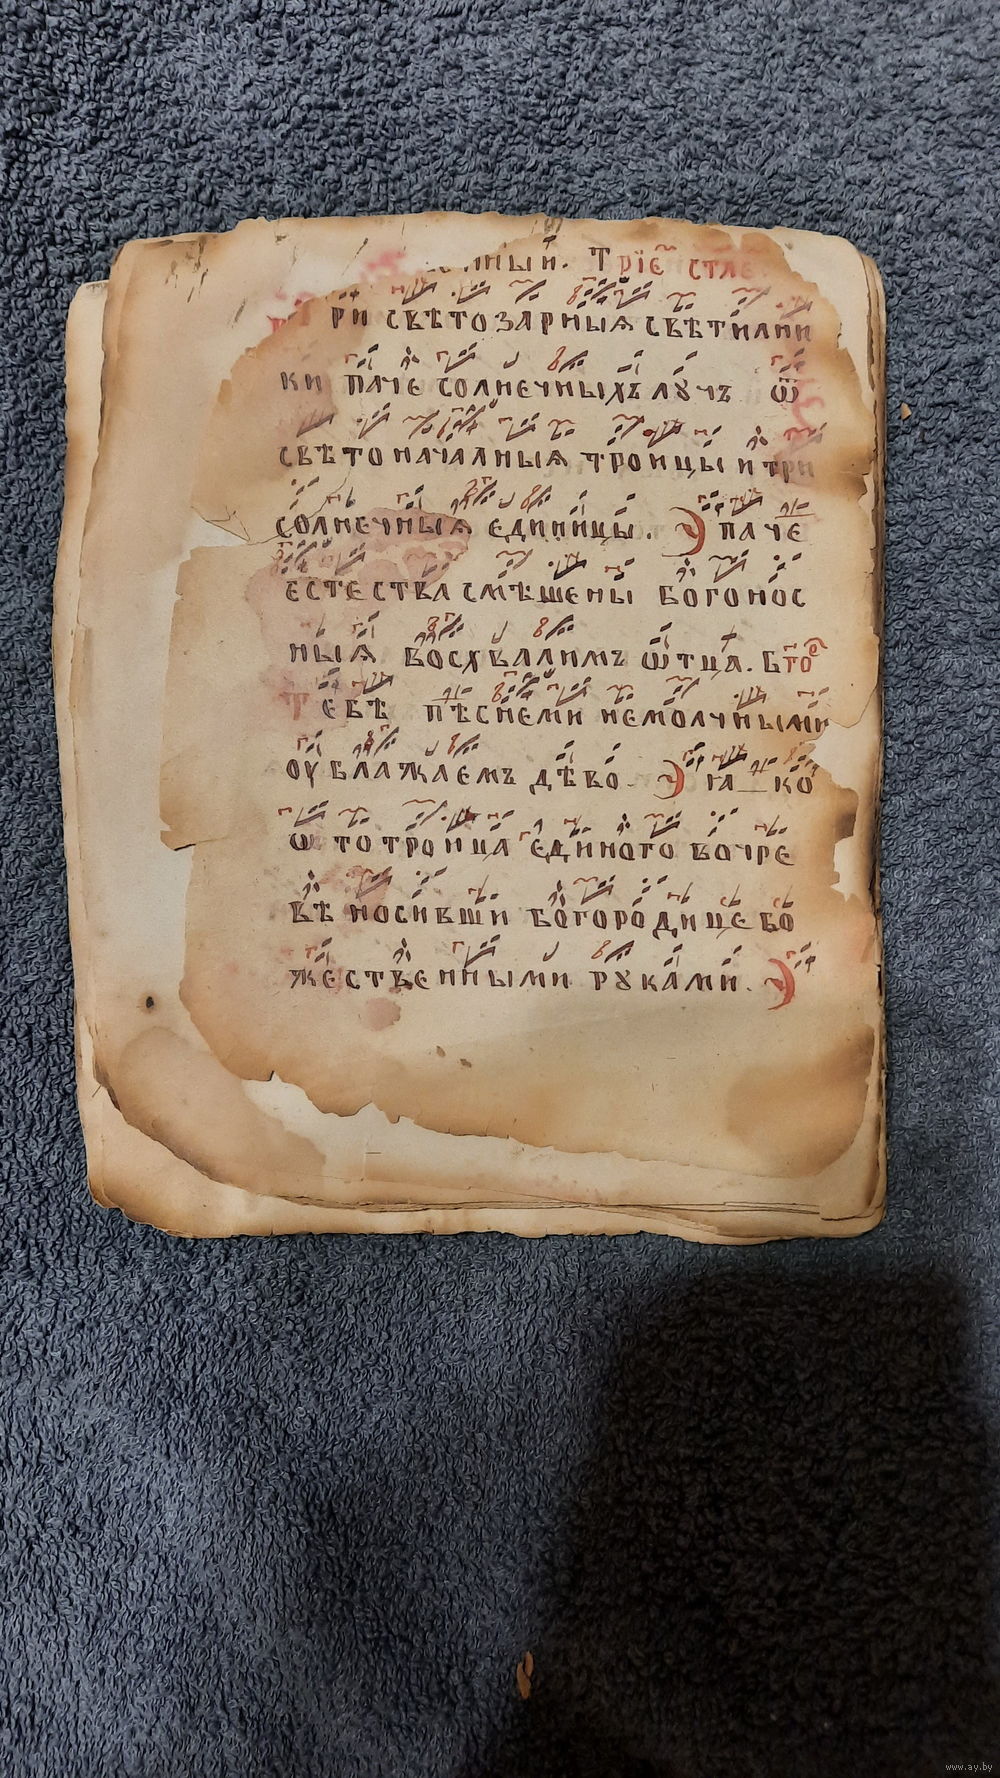 нный. Трїе стле
Три свѣтозарныѧ свѣтилни
ки паче солнечныхъ лꙋчъ ѿ
свѣтоначалныѧ троицы и три
солнечныѧ единицы. паче
естества смѣшены богонос
ныѧ восхвалимъ ѿтца. Бго
Тебѣ пѣснеми немолчными
оублажаемъ дѣво. ꙗко
ѿ то троица единого во чре
вѣ носивши богородице бо
жественными рꙋками.
www.ay.by